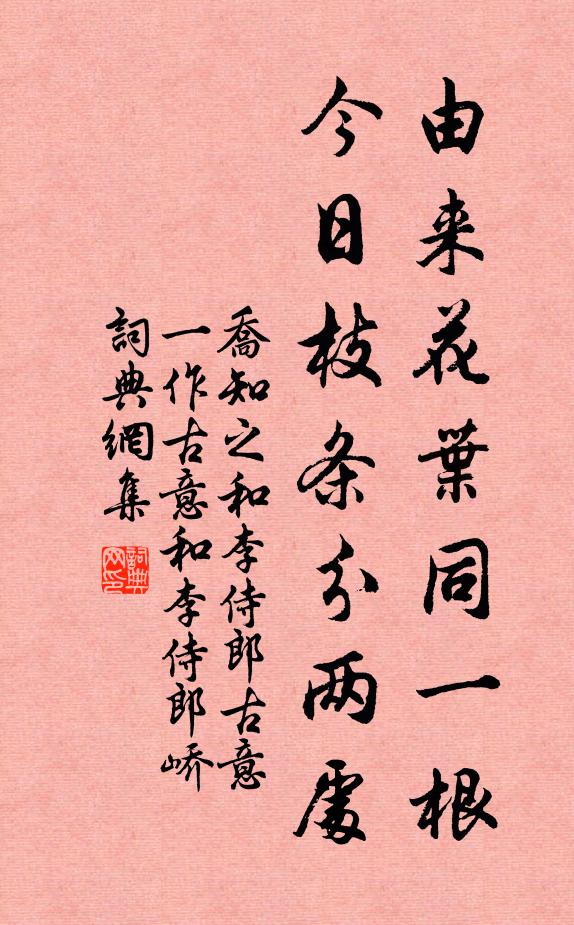 由来花葉同一根
今日枝条分两處
喬知之和李侍郎古意
一作古意和李侍郎嶠
詞典網集
詞典网印